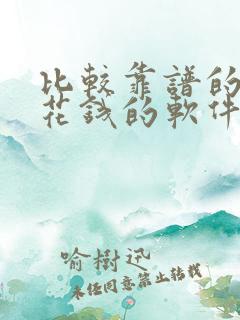 比較靠譜的
花錢的軟件
喻樹迅
未经同意禁止转载